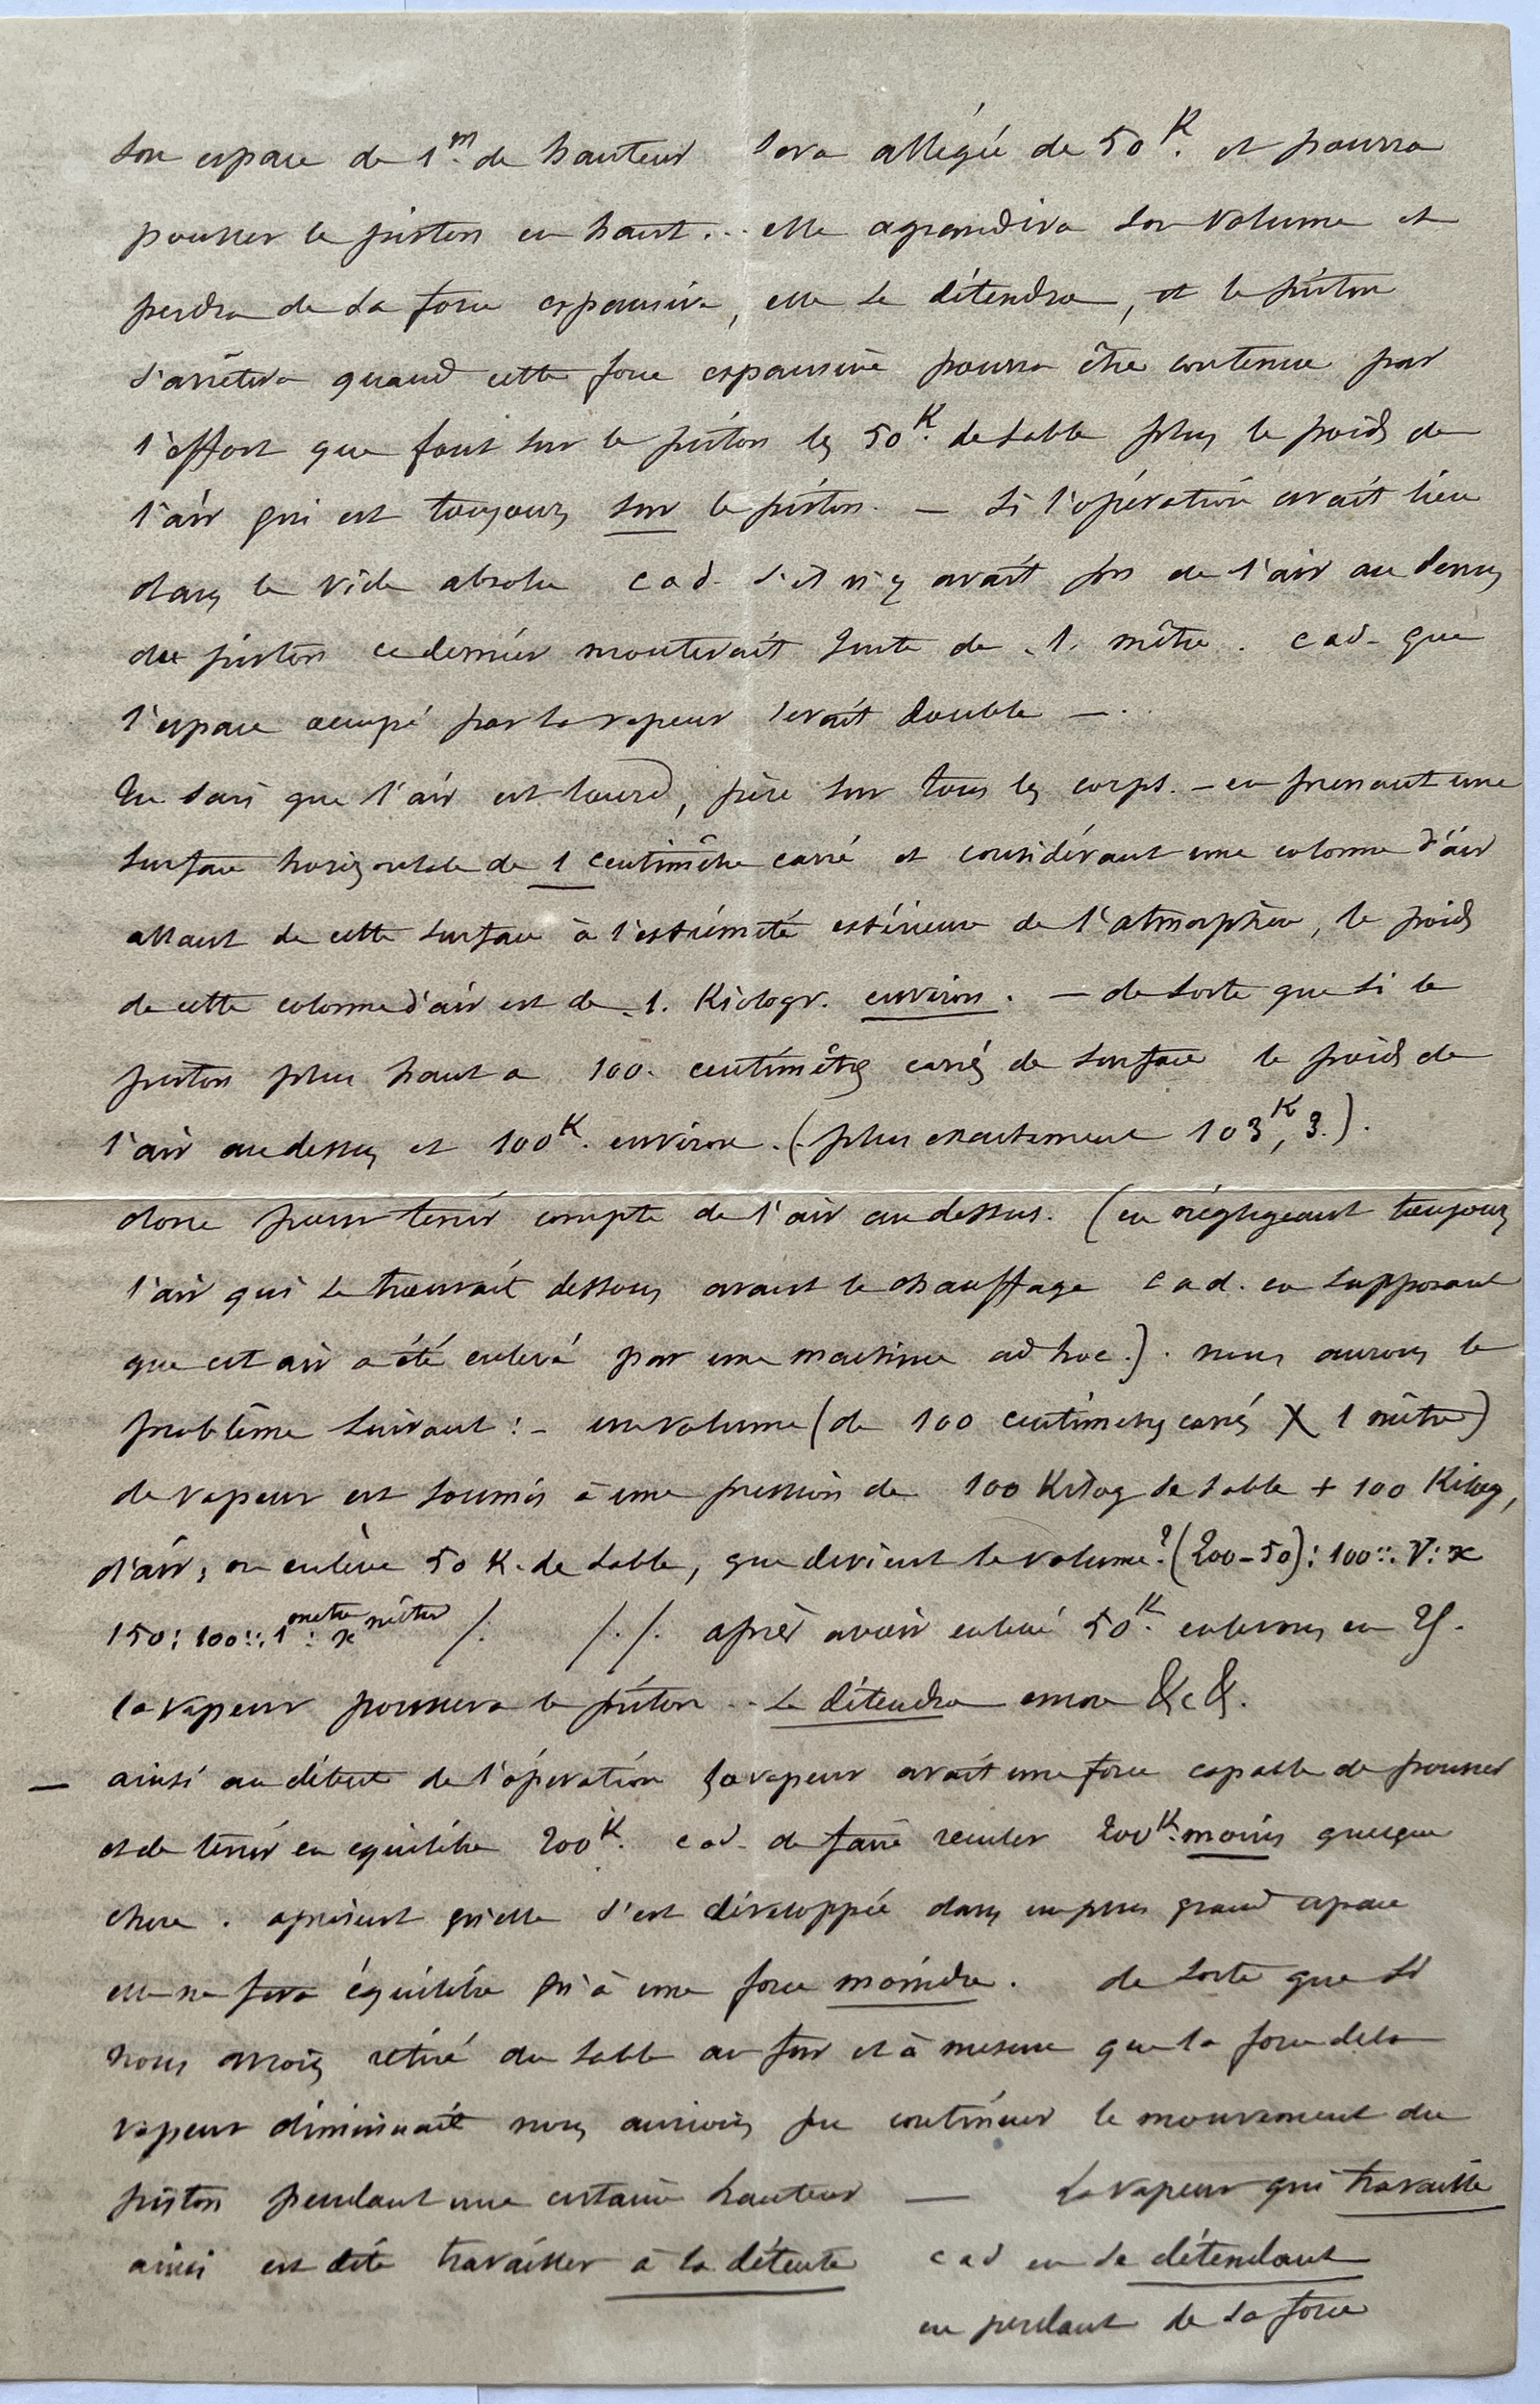 son espace de 1.m de hauteur sera allégée de 50K. et pourra
pousser le piston en haut... elle agrandira son volume et
perdra de sa force expansive, elle se détendra, et le piston
s'arrêtera quand cette force expansive pourra être contenue par
l'effort que font sur le piston les 50K. de sable plus le poids de
l'air qui est toujours sur le piston. — Si l'opération avait lieu
dans le vide absolu c a d. s'il n'y avait pas de l'air au dessus
du piston ce dernier monterait juste de .1. mètre. c a d. que
l'espace occupé par la vapeur serait double —.
Tu sais que l'air est lourd, pèse sur tous les corps. — en prenant une
surface horizontale de 1 centimètre carré et considérant une colonne d'air
allant de cette surface à l'extrémité extérieure de l'atmosphère, le poids
de cette colonne d'air est de .1. Kilogr. environ. — de sorte que si le
piston plus haut a 100. centimètres carrés de surface le poids de
l'air au dessus est 100K. environ. (plus exactement 103K,3.).
donc pour tenir compte de l'air au dessus. (en négligeant toujours
l'air qui se trouvait dessous avant le chauffage c a d. en supposant
que cet air a été enlevé par une machine ad hoc.). nous aurons le
problème suivant : - un volume (de 100 centimètres carrés X 1 mètre)
de vapeur est soumis à une pression de 100 Kilog de sable + 100 Kilog,
d'air, on enlève 50 K. de sable, que devient le volume? (200-50) : 100 :: V : x
150 : 100 :: 1 mètre : x mètres /. /./. après avoir enlevé 50K. enlevons en 25.
la vapeur poussera le piston... se détendra encore &c &.
— ainsi au début de l'opération la vapeur avait une force capable de pousser
et de tenir en équilibre 200K. c a d. de faire reculer 200K. moins quelque
chose. à présent qu'elle s'est développée dans un plus grand espace
elle ne fera équilibre qu'à une force moindre. de sorte que si
nous avions retiré du sable au fur et à mesure que la force de la
vapeur diminuait nous aurions pu continuer le mouvement du
piston pendant une certaine hauteur — La vapeur qui travaille
ainsi est dite travailler à la détente c a d en se détendant
en perdant de sa force